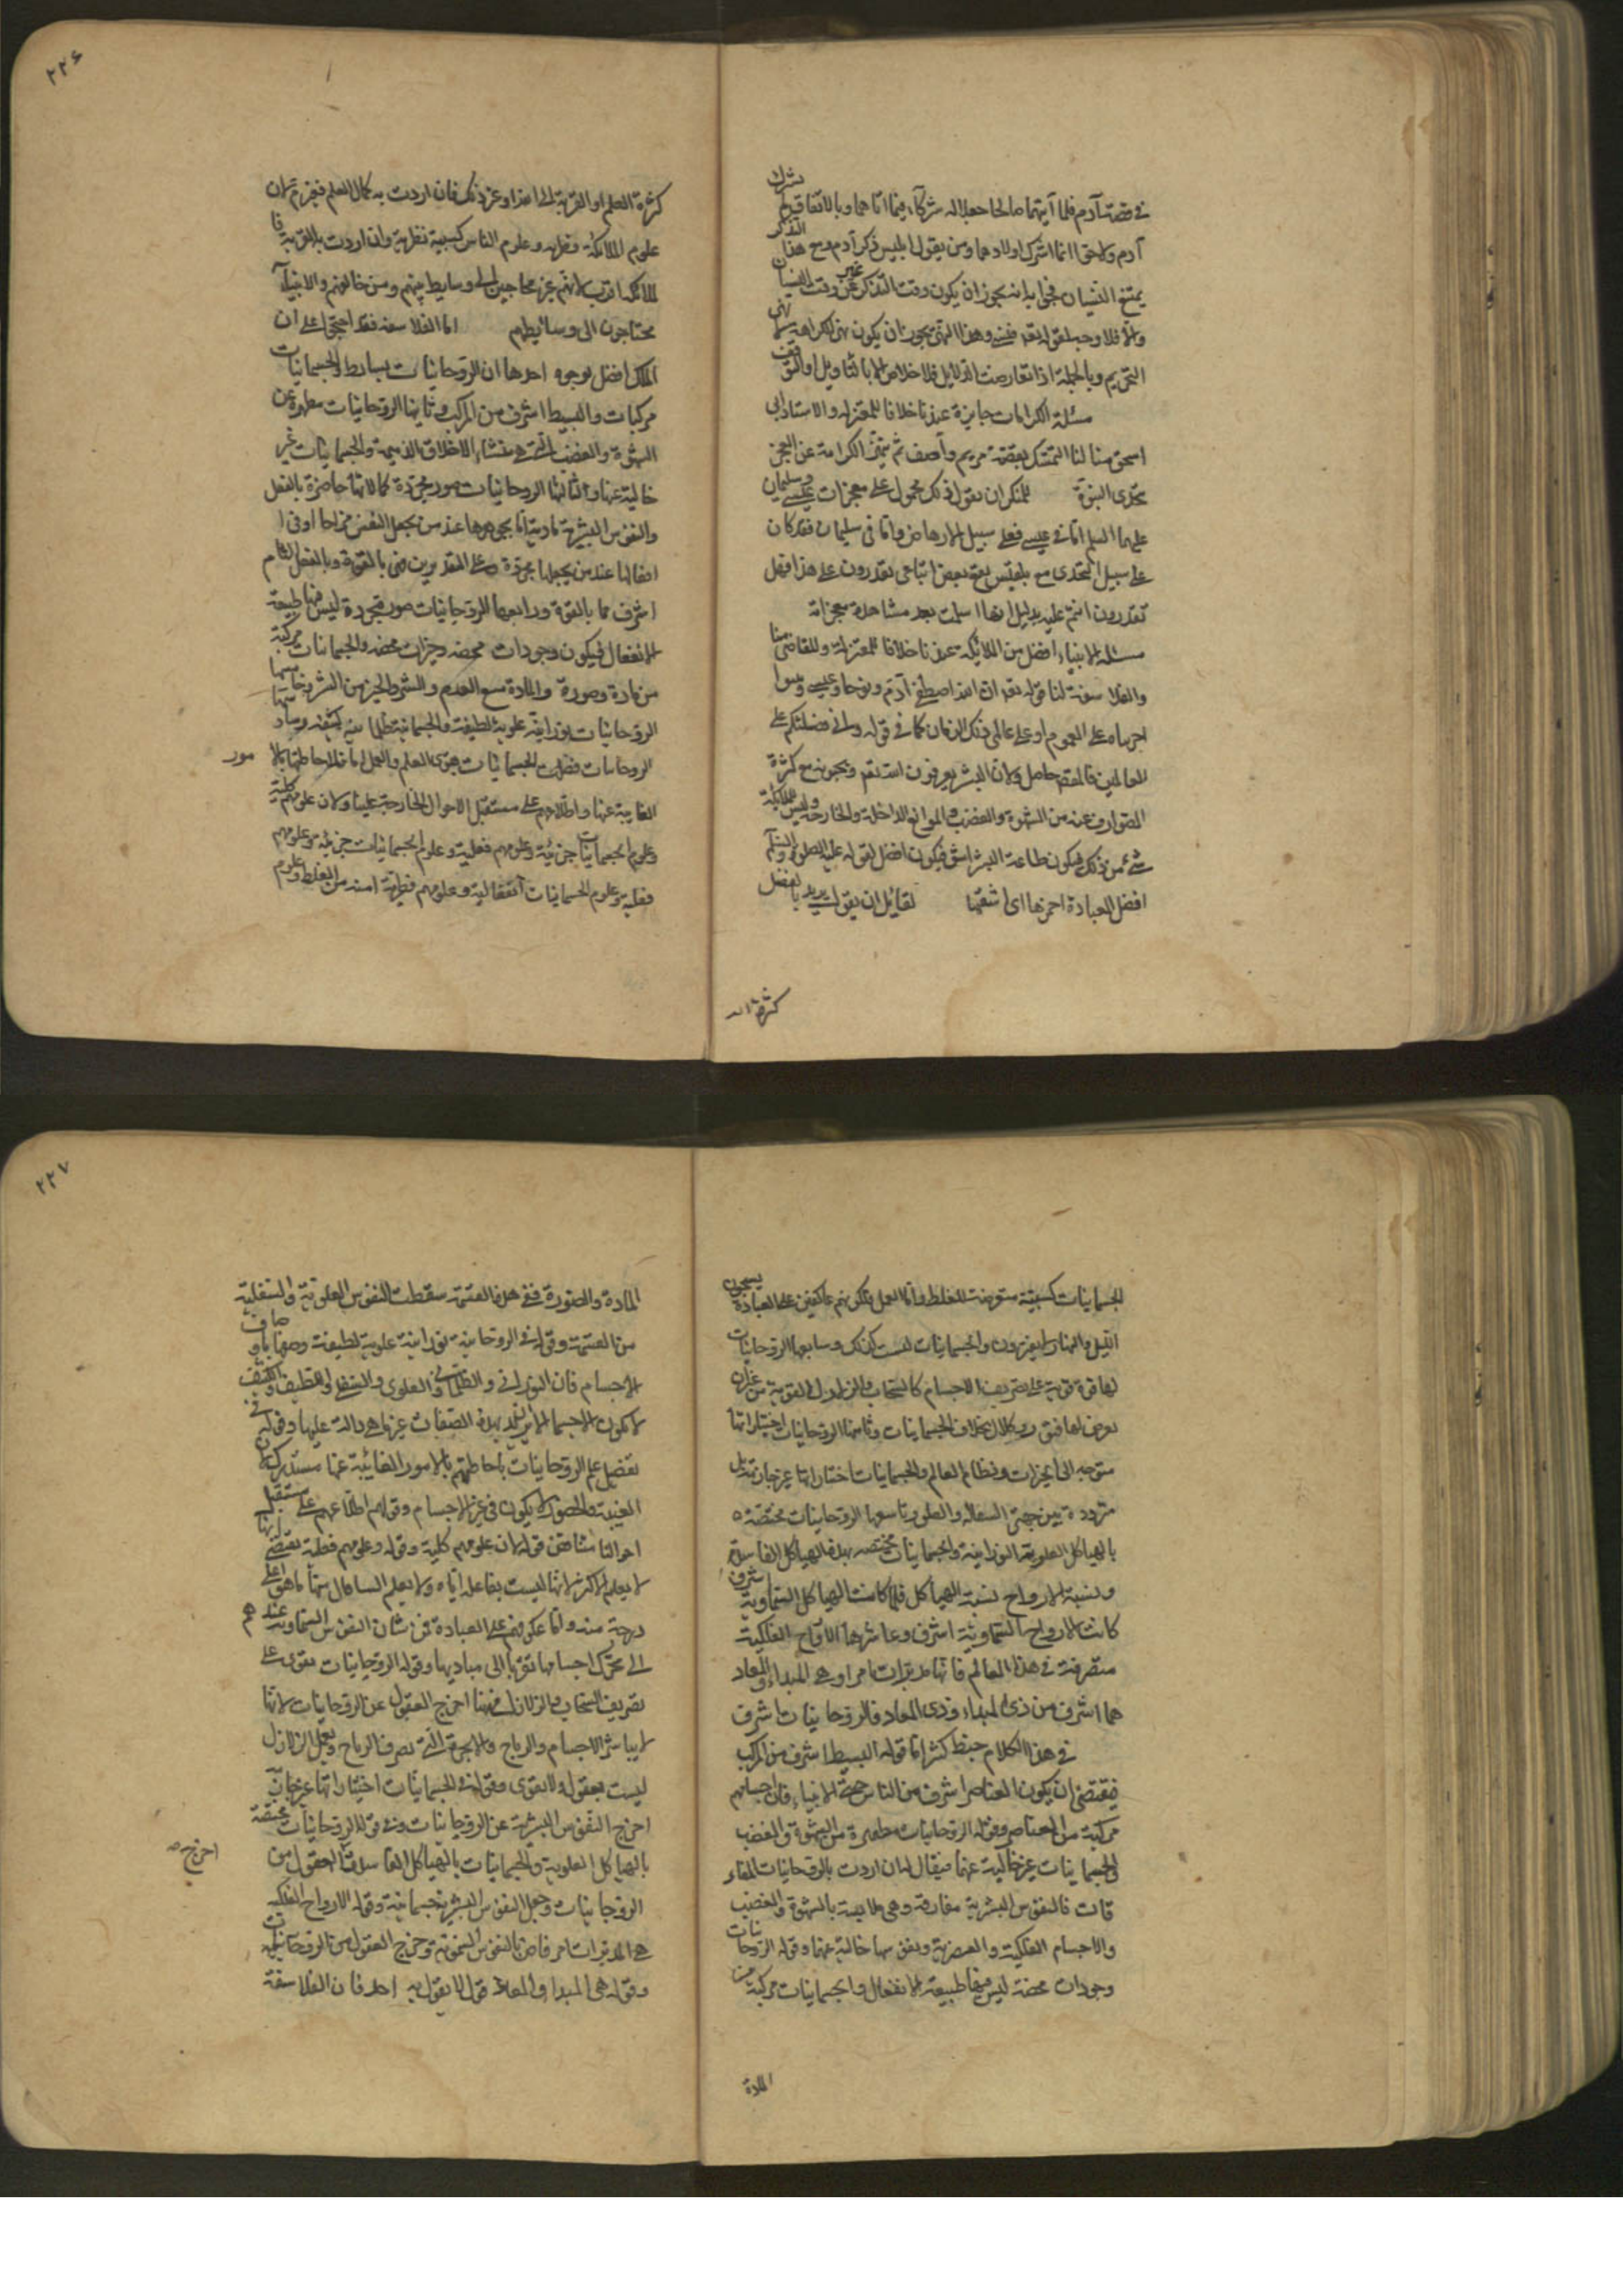 في قصة آدم فلما آتيهما صالحا جعلا له شركآء فيما اتاهما وبالاتفاق لم يشرك
آدم ولا حوا انما اشرك اولادهما ومن يقول ابليس ذكر آدم ومع هذا التذكر
يمتنع النسيان فجوابه انه يجوز ان يكون وقت التذكر غير وقت النسيان
والا فلا وجه لقوله تعه فنسي وهذا النهي يجوز ان يكون نهي الكراهة لا نهى
التحريم وبالجملة اذا تعارضت الدلايل فلا خلاص الا بالتاويل او التوقف
مسئلة الكرامات جايزة عندنا خلافا للمعتزلة والاستاد ابي
اسحق منا لنا التمسك بقصة مريم وآصف ثم تميز الكرامة عن المعجز
بتحدى النبوة للمنكر ان يقول ذلك محمول على معجزات عيسى وسليمان
عليهما السلم اما في عيسى فعلى سبيل الارهاص واما في سليمان فقد كان
على سبيل التحدى مع بلقيس يعني بعض اتباعى يقدرون على هذا فهل
تقدرون انتم عليه بدليل انها اسلمت بعد مشاهدة معجزاته
مسئلة الانبياء افضل من الملائكة عندنا خلافا للمعتزلة وللقاضي منا
والفلاسفة لنا قوله تعه ان الله اصطفى آدم ونوحا وعيسى
اجريناه على العموم او على عالمى ذلك الزمان كما في قوله واني فضلتكم على
العالمين فالمقصود حاصل ولان البشر يعبدون الله تعه مع كثرة
الصوارف عنه من الشهوة والغضب والموانع الداخلة والخارجة وليس للملائكة
شئ من ذلك فيكون طاعة البشر اشق فيكون افضل لقوله عليه الصلوة والسلم
افضل العبادة احمزها اى اشقها لقائل ان يقول يريد بافضل
كثرة الـ
٢٢٦
كثرة العلم او القربة الى الله او غير ذلك فان اردت به كمال العلم فغير مسلم لان
علوم الملائكة فطرية وعلوم الناس كسبية نظرية وان اردت به القربة فا
لملائكة اقرب لانهم غير محتاجين الى وسايط بينهم وبين خالقهم والانبيآء
محتاجون الى وسائطهم اما الفلاسفة فقد احتجوا على ان
الملك افضل بوجوه احدها ان الروحانيات بسايط والجسمانيات
مركبات والبسيط اشرف من المركب وثانيها الروحانيات مطهرة عن
الشهوة والغضب التي هي منشاء الاخلاق الذميمة والجسمانيات غير
خالية عنها وثالثها الروحانيات صور مجردة كمالاتها حاضرة بالفعل
والنفوس البشرية مادية اما بجوهرها عند من يجعل النفس مزاجا او في ا
فعالها عند من يجعلها مجردة وعلى التقديرين فهي بالقوة وبالفعل التام
اشرف مما بالقوة ورابعها الروحانيات صور مجردة ليس فيها طبيعة
الانفعال فيكون وجودات محضة وخيرات محضة والجسمانيات مركبة
من مادة وصورة والمادة منبع العدم والشر والخير من الشر وخامسها
الروحانيات نورانية علوية لطيفة والجسمانية ظلمانية كثيفة وسادسها
الروحانيات فضلت الجسمانيات بقوى العلم والعمل اما فلاحاطتها بالا مور
الغايبة عنها واطلاعهم على مستقبل الاحوال الخارجة علينا ولان علومهم كلية
وعلوم الجسمانيات جزئية وعلومهم فعلية وعلوم الجسمانيات جزئية وعلومهم
فعلية وعلوم الجسمانيات انفعالية وعلومهم فطرية امنة من الغلط وعلوم
الجسمانيات كسبية متوجهة للغلط واما العمل فلكونهم عاكفين على العبادة يسبحون
الليل والنهار لا يفترون والجسمانيات ليست كذلك وسابعها الروحانيات
لها قوة قوية على تصريف الاجسام كالسحاب والزلازل القوية من غير ان
يعرض لها فتور وكلال بخلاف الجسمانيات وثامنها الروحانيات اختياراتها
متوجهة الى الخيرات ونظام العالم والجسمانيات اختياراتها غير جازمة بل
مترددة بين جهتي السفالة والعلو وتاسعها الروحانيات مختصة
بالهياكل العلوية النورانية والجسمانيات مختصة بهذه الهياكل الفاسدة
ونسبة الارواح نسبة الهياكل فلما كانت الهياكل السماوية اشرف
كانت الارواح السماوية اشرف وعاشرها الارواح الفلكية
متصرفة في هذا العالم فانها مدبرات امرا وهي المبداء والمعاد
هما اشرف من ذي المبداء وذي المعاد فالروحانيات اشرف
في هذا الكلام خبط كثير اما قوله البسيط اشرف من المركب
فيقتضي ان يكون العناصر اشرف من الناس حتى الانبياء فان اجسامهم
مركبة من العناصر وقوله الروحانيات مطهرة من الشهوة والغضب
والجسمانيات غير خالية عنها فيقال له ان اردت بالروحانيات المفا ر
قات فالنفوس البشرية مفارقة وهي ملابسة بالشهوة والغضب
والاجسام الفلكية والعنصرية ونفوسها خالية عنها وقوله الروحانيات
وجودات محضة ليس فيها طبيعة الانفعال والجسمانيات مركبة من
المادة
٢٢٧
المادة والصورة ففي هذه القسمة سقطت النفوس العلوية والسفلية
من القسمة وقوله في الروحانية نورانية علوية لطيفة وصفها باوصاف
الاجسام فان النوراني والظلماني والعلوى والسفلى واللطيف والكثيف
لا يكون الا جسما الا ان يريد بهذه الصفات غير ما هي دالة عليها وقوله في
تفضيل علم الروحانيات باحاطتهم بالامور الغائبة عنا مستدرك لان
الغيبة والحضور لا يكون في غير الاجسام وقوله اطلاعهم على مستقبل
احوالنا يناقض قوله ان علومهم كلية وقوله وعلومهم فعلية يقتضي انها
لا يعلم الاكثر لانها ليست بفاعلة اياه ولا يعلم السافل منها ما هو اعلى
درجة منه واما عكوفهم على العبادة فمن شان النفوس السماوية عندهم
التي تحرك اجسامها شوقها الى مباديها وقوله الروحانيات تقوى على
تصريف السحاب والزلازل فههنا اخرج العقول عن الروحانيات لانها
لا يباشر الاجسام والرياح والابخرة التي تصرف الرياح وتفعل الزلازل
ليست بعقول ولا بقوى وقوله في الجسمانيات اختياراتها غير جازمة
اخرج النفوس البشرية عن الروحانيات وفي قوله الروحانيات مختصة
بالهياكل العلوية والجسمانيات بالهياكل الفاسدة اخرج العقول من
الروحانيات وجعل النفوس البشرية جسمانية وقوله الارواح الفلكية
هي المدبرات امر خاص بالنفوس السماوية وخرج العقول من الروحانيات
وقوله هي المبداء والمعاد قول لا يقول به احد فان الفلاسفة